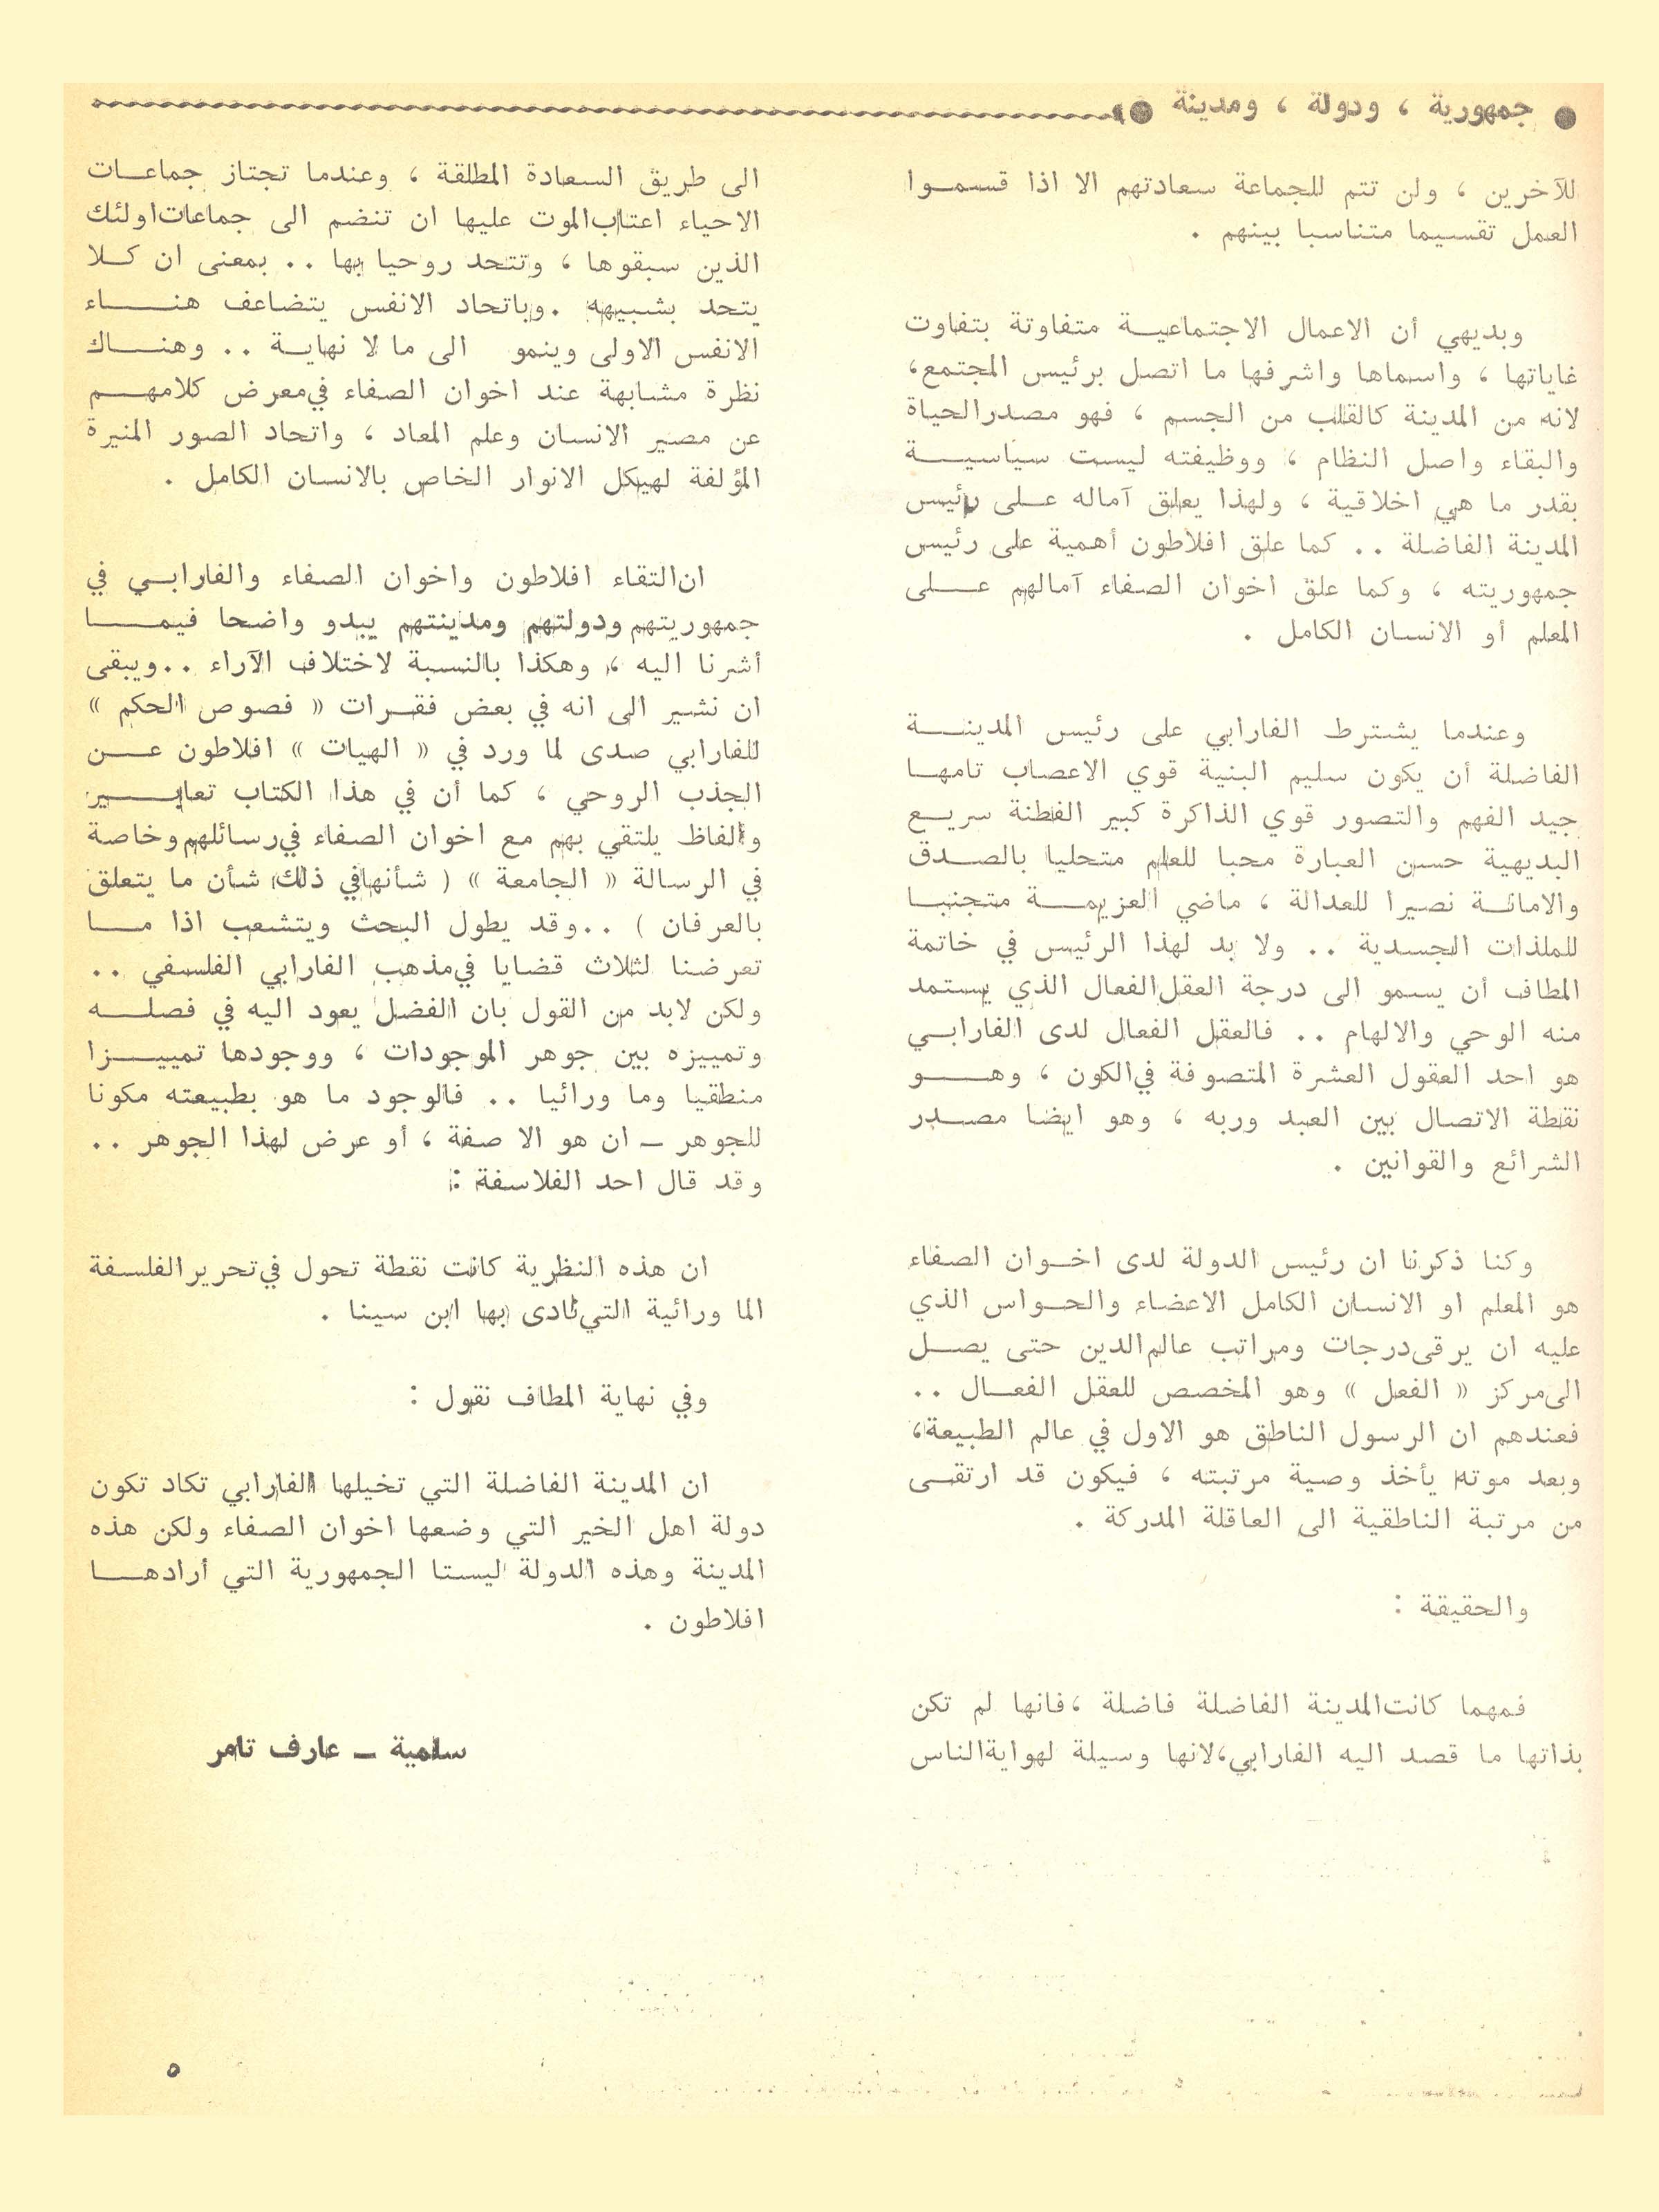 ● جمهورية ، ودولة ، ومدينة ●
للآخرين ، ولن تتم للجماعة سعادتهم الا اذا قسموا
العمل تقسيما متناسبا بينهم .
وبديهي أن الاعمال الاجتماعية متفاوتة بتفاوت
غاياتها ، واسماها واشرفها ما اتصل برئيس المجتمع،
لانه من المدينة كالقلب من الجسم ، فهو مصدر الحياة
والبقاء واصل النظام ، ووظيفته ليست سياسية
بقدر ما هي اخلاقية ، ولهذا يعلق آماله على رئيس
المدينة الفاضلة .. كما علق افلاطون أهمية على رئيس
جمهوريته ، وكما علق اخوان الصفاء آمالهم على
المعلم أو الانسان الكامل .
وعندما يشترط الفارابي على رئيس المدينة
الفاضلة أن يكون سليم البنية قوي الاعصاب تامها
جيد الفهم والتصور قوي الذاكرة كبير الفطنة سريع
البديهية حسن العبارة محبا للعلم متحليا بالصدق
والامانة نصيرا للعدالة ، ماضي العزيمة متجنبا
للملذات الجسدية .. ولا بد لهذا الرئيس في خاتمة
المطاف أن يسمو الى درجة العقل الفعال الذي يستمد
منه الوحي والالهام .. فالعقل الفعال لدى الفارابي
هو احد العقول العشرة المتصوفة في الكون ، وهو
نقطة الاتصال بين العبد وربه ، وهو ايضا مصدر
الشرائع والقوانين .
وكنا ذكرنا ان رئيس الدولة لدى اخوان الصفاء
هو المعلم او الانسان الكامل الاعضاء والحواس الذي
عليه ان يرقى درجات ومراتب عالم الدين حتى يصل
الى مركز « الفعل » وهو المخصص للعقل الفعال ..
فعندهم ان الرسول الناطق هو الاول في عالم الطبيعة،
وبعد موته يأخذ وصية مرتبته ، فيكون قد ارتقى
من مرتبة الناطقية الى العاقلة المدركة .
والحقيقة :
فمهما كانت المدينة الفاضلة فاضلة ، فانها لم تكن
بذاتها ما قصد اليه الفارابي، لانها وسيلة لهواية الناس
الى طريق السعادة المطلقة ، وعندما تجتاز جماعات
الاحياء اعتاب الموت عليها ان تنضم الى جماعات اولئك
الذين سبقوها ، وتتحد روحيا بها .. بمعنى ان كلا
يتحد بشبيهه . وباتحاد الانفس يتضاعف هناء
الانفس الاولى وينمو الى ما لا نهاية .. وهناك
نظرة مشابهة عند اخوان الصفاء في معرض كلامهم
عن مصير الانسان وعلم المعاد ، واتحاد الصور المنيرة
المؤلفة لهيكل الانوار الخاص بالانسان الكامل .
ان التقاء افلاطون واخوان الصفاء والفارابي في
جمهوريتهم ودولتهم ومدينتهم يبدو واضحا فيما
أشرنا اليه ، وهكذا بالنسبة لاختلاف الآراء .. ويبقى
ان نشير الى انه في بعض فقرات « فصوص الحكم »
للفارابي صدى لما ورد في « الهيات » افلاطون عن
الجذب الروحي ، كما أن في هذا الكتاب تعابير
والفاظ يلتقي بهم مع اخوان الصفاء في رسائلهم وخاصة
في الرسالة « الجامعة » ( شأنها في ذلك شأن ما يتعلق
بالعرفان ) .. وقد يطول البحث ويتشعب اذا ما
تعرضنا لثلاث قضايا في مذهب الفارابي الفلسفي ..
ولكن لابد من القول بان الفضل يعود اليه في فصله
وتمييزه بين جوهر الموجودات ، ووجودها تمييزا
منطقيا وما ورائيا .. فالوجود ما هو بطبيعته مكونا
للجوهر – ان هو الا صفة ، أو عرض لهذا الجوهر ..
وقد قال احد الفلاسفة :
ان هذه النظرية كانت نقطة تحول في تحرير الفلسفة
الما ورائية التي نادى بها ابن سينا .
وفي نهاية المطاف نقول :
ان المدينة الفاضلة التي تخيلها الفارابي تكاد تكون
دولة اهل الخير التي وضعها اخوان الصفاء ولكن هذه
المدينة وهذه الدولة ليستا الجمهورية التي أرادها
افلاطون .
سلمية – عارف تامر
٥